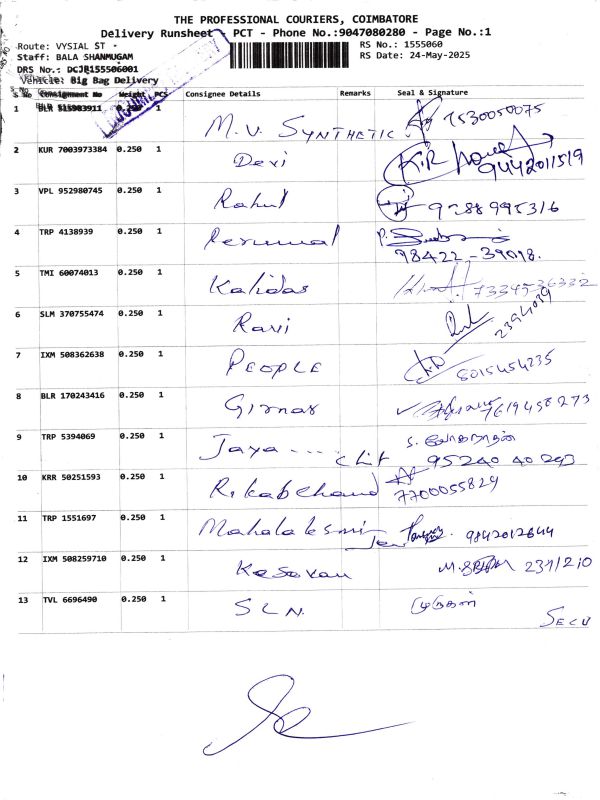 THE PROFESSIONAL COURIERS, COIMBATORE
Delivery Runsheet - PCT - Phone No.:9047080280 - Page No.:1
Route: VYSIAL ST RS No.: 1555060
Staff: BALA SHANMUGAM RS Date: 24-May-2025
DRS No.: DCJP155506001
Vehicle: Big Bag Delivery
S No Consignment No Weight PCS Consignee Details Remarks Seal & Signature
1 BLR 0.250 1 M.V. SYNTHETIC 7530050075
2 KUR 7003973384 0.250 1 Devi K.R 9442011519
3 VPL 952980745 0.250 1 Rahul
4 TRP 4138939 0.250 1 Perumal 98422-39018.
5 TMI 60074013 0.250 1 Kalidas
6 SLM 370755474 0.250 1 Ravi 2394039
7 IXM 508362638 0.250 1 PEOPLE 8015454235
8 BLR 170243416 0.250 1 Girnar
9 TRP 5394069 0.250 1 Jaya .... chit 95240 40293
10 KRR 50251593 0.250 1 R. kabchand 7700055829
11 TRP 1551697 0.250 1 Mahalakshmi 9842012644
12 IXM 508259710 0.250 1 Kesavan
13 TVL 6696490 0.250 1 SLN. முருகன்